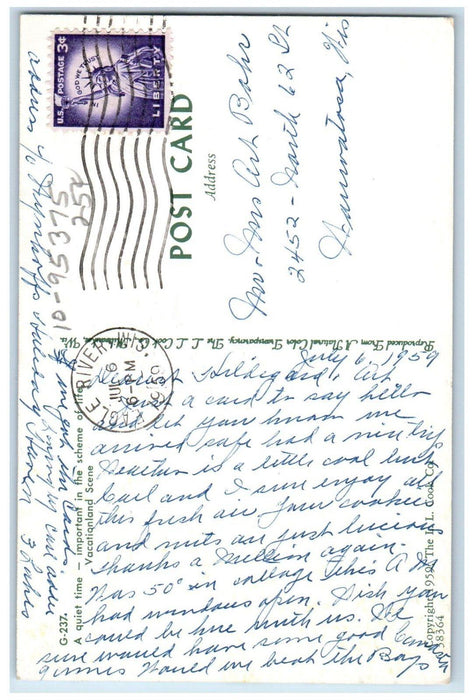 U.S. POSTAGE 3¢
IN GOD WE TRUST
LIBERTY
POST CARD
Address
Mr + Mrs Art Bohr
2452 - North 62 St
Wauwatosa, Wis
10-95375
25¢
EAGLE RIVER, WIS.
JUL 6
6 - PM
1959
Reproduced From A Natural Color Transparency, The L. L. Cook Co., Milwaukee, Wis.
July 6, 1959
Dearest Hildegard + Art
Just a card to say hello
and let you know we
arrived safe had a nice trip
Weather is a little cool but
Carl and I sure enjoy all
this fresh air. Your cookies
and nuts are just luscious
thanks a Million again.
Was 50° in cottage this A.M.
had windows open. Wish you
could be here with us. We
sure would have some good Canasta
games. Would we beat the Boys
G-237.
A quiet time - important in the scheme of life.
Vacationland Scene
Copyright 1959, The L. L. Cook Co.
38364
If you get in
our address
3 Lakes